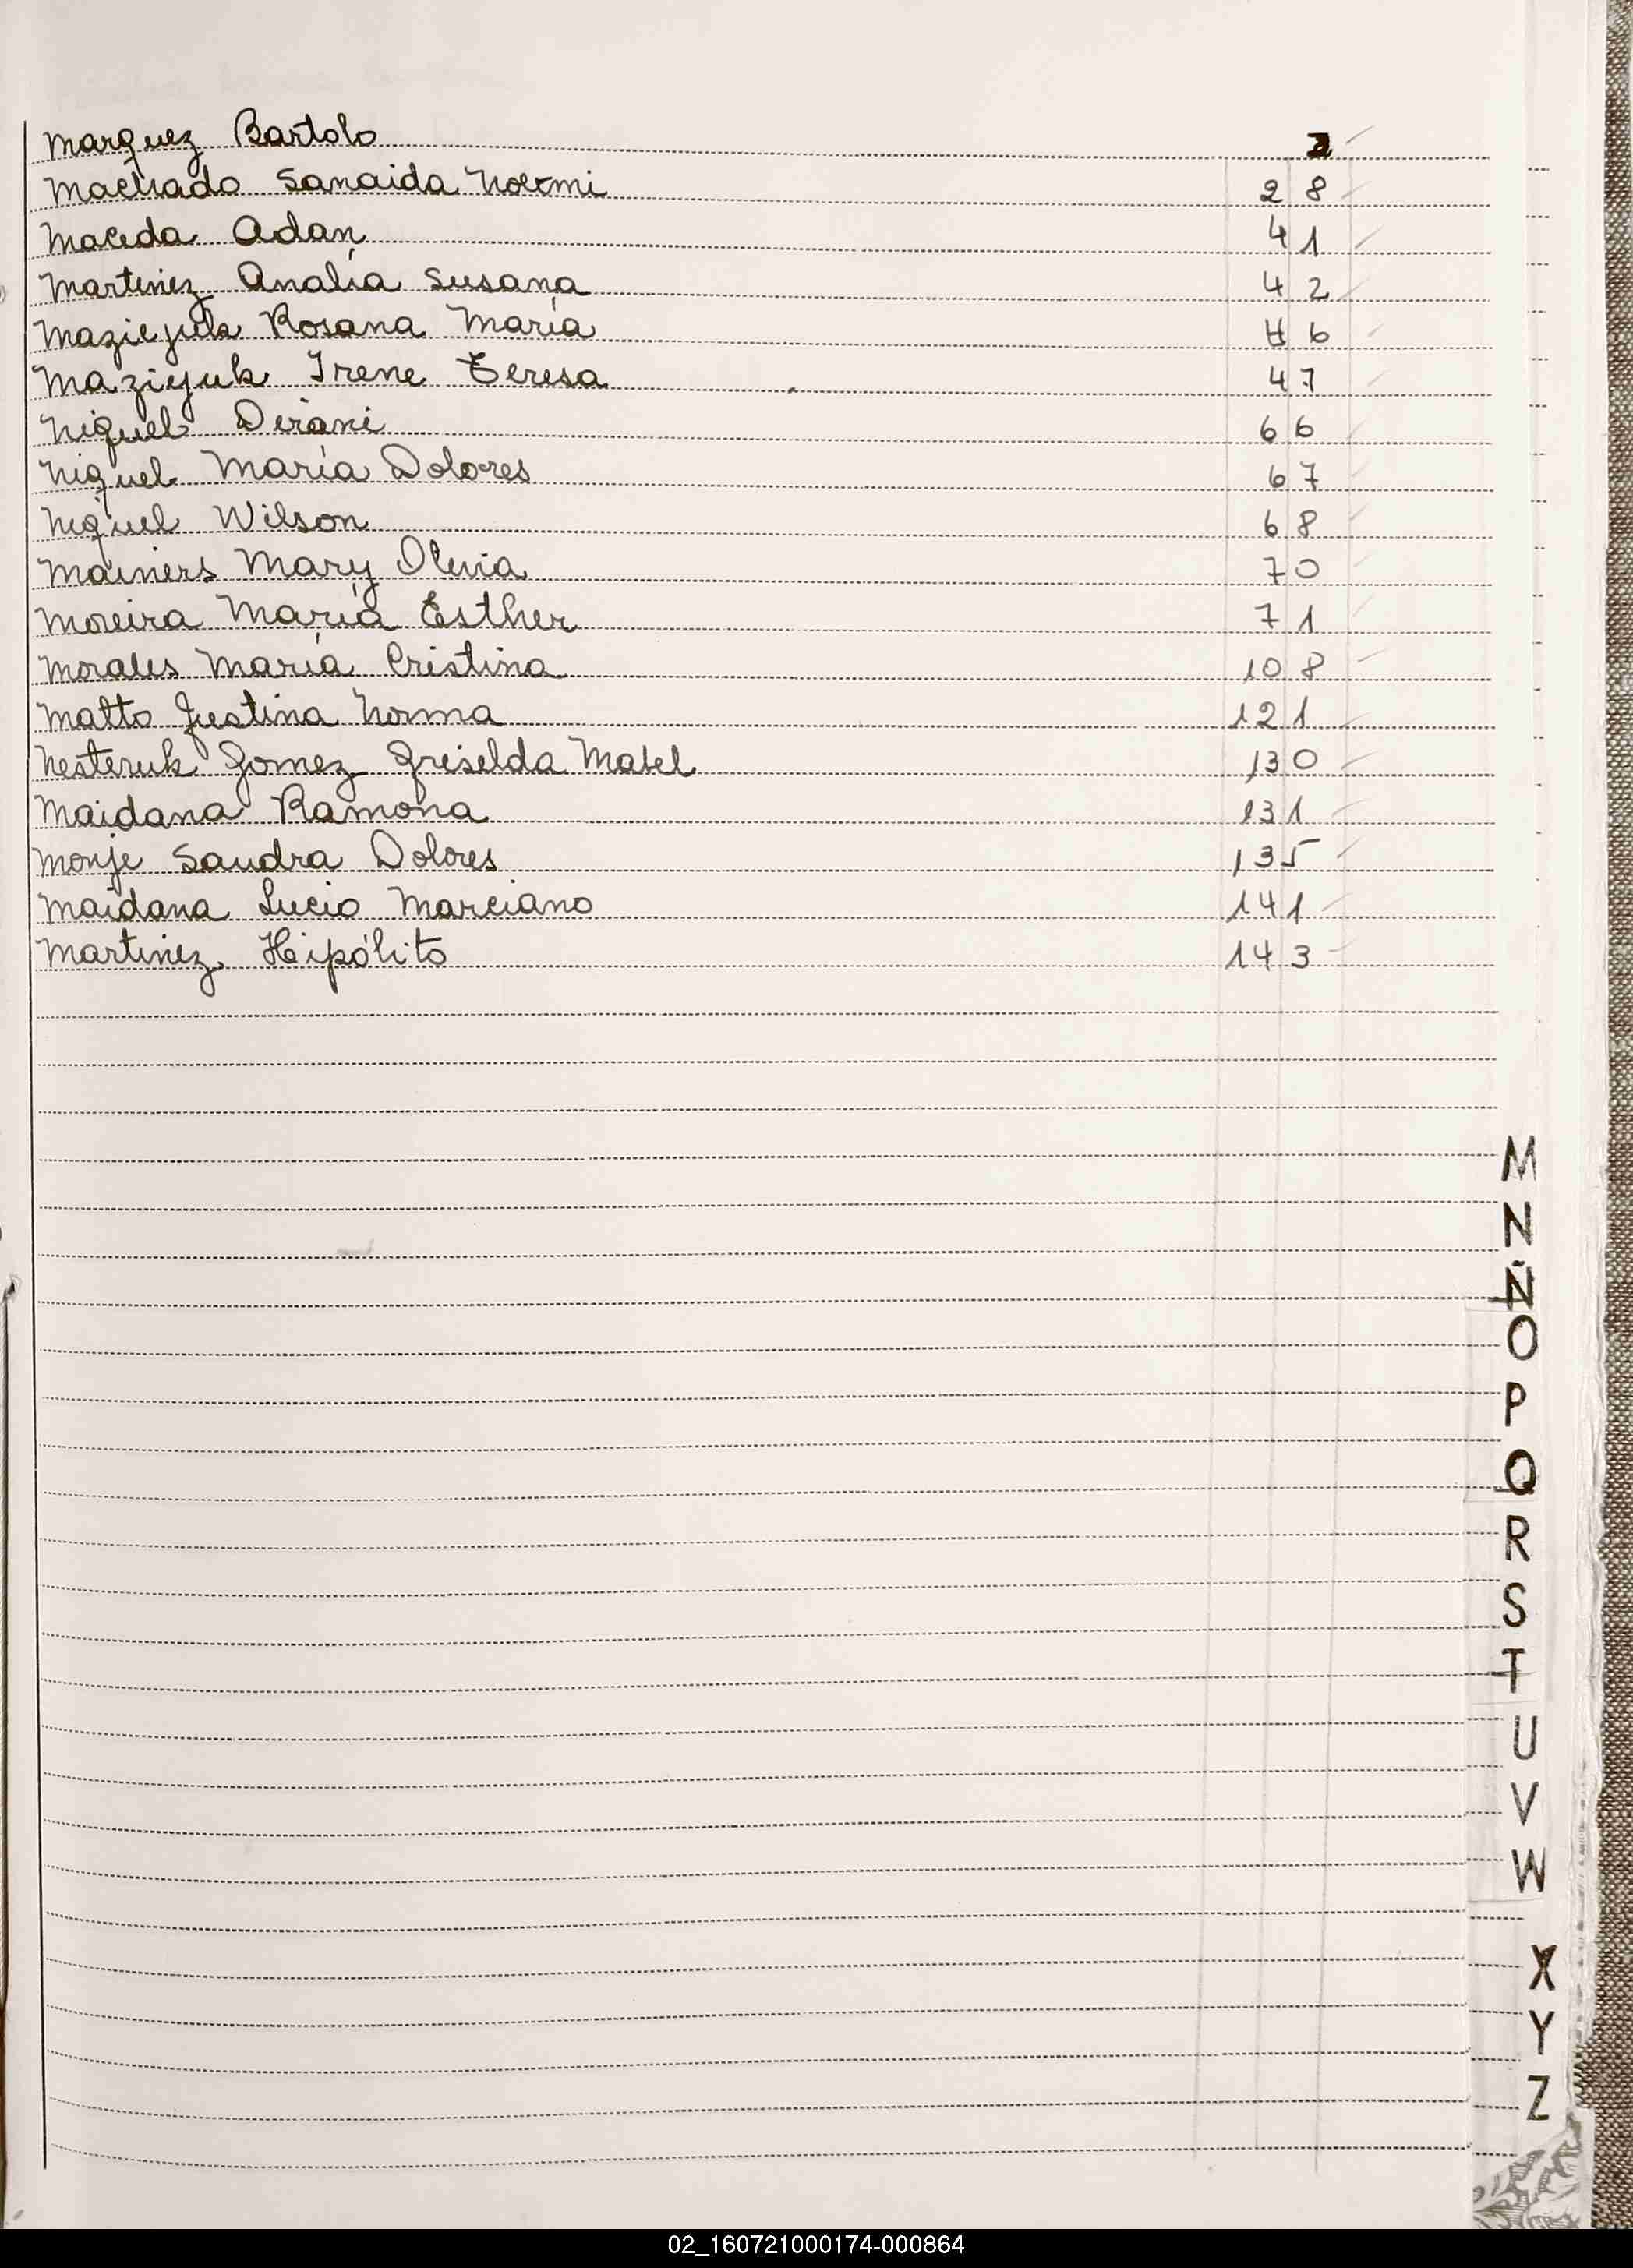 Marquez Bartolo 2
Machado Sanaida Noemi 28
Maceda Adan 41
Martinez Analía Susana 42
Rosana María 46
Irene Teresa 47
Niquel 66
Niquel María Dolores 67
Niquel Wilson 68
Mainers Mary Olivia 70
Moreira María Esther 71
Morales María Cristina 108
Matto Justina Norma 121
Nesteruk Gomez Griselda Mabel 130
Maidana Ramona 131
Monje Sandra Dolores 135
Maidana Lucio Marciano 141
Martinez Hipólito 143
M
N
Ñ
O
P
Q
R
S
T
U
V
W
X
Y
Z
02_160721000174-000864